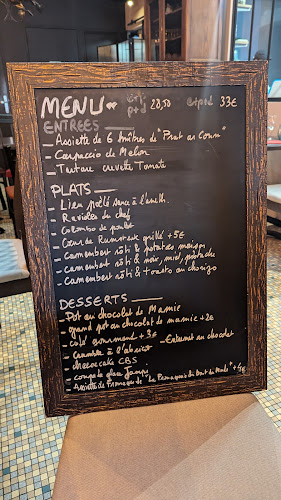 MENU e+p p+d 28,50 e+p+d 33€
ENTREES
- Assiette de 6 huîtres d' "Prat ar Coum"
- Carpaccio de Melon
- Tartare crevette Tomate
PLATS
- Lieu poêlé sauce à l'aneth
- Ravioles du chef
- Colombo de poulet
- Cœur de Rumsteack grillé +5€
- Camembert rôti & potatoes maison
- Camembert rôti & noix, miel,
- Camembert rôti & toasts au chorizo
DESSERTS
- Pot au chocolat de Mamie
- grand pot au chocolat de mamie +2€
- café gourmand +3€ - Entremet au chocolat
- Crumble à l'abricot
- cheesecake CBS
- coupe de glace
- Assiette de Fromages de "La Fromagerie du bout du Monde" +4€